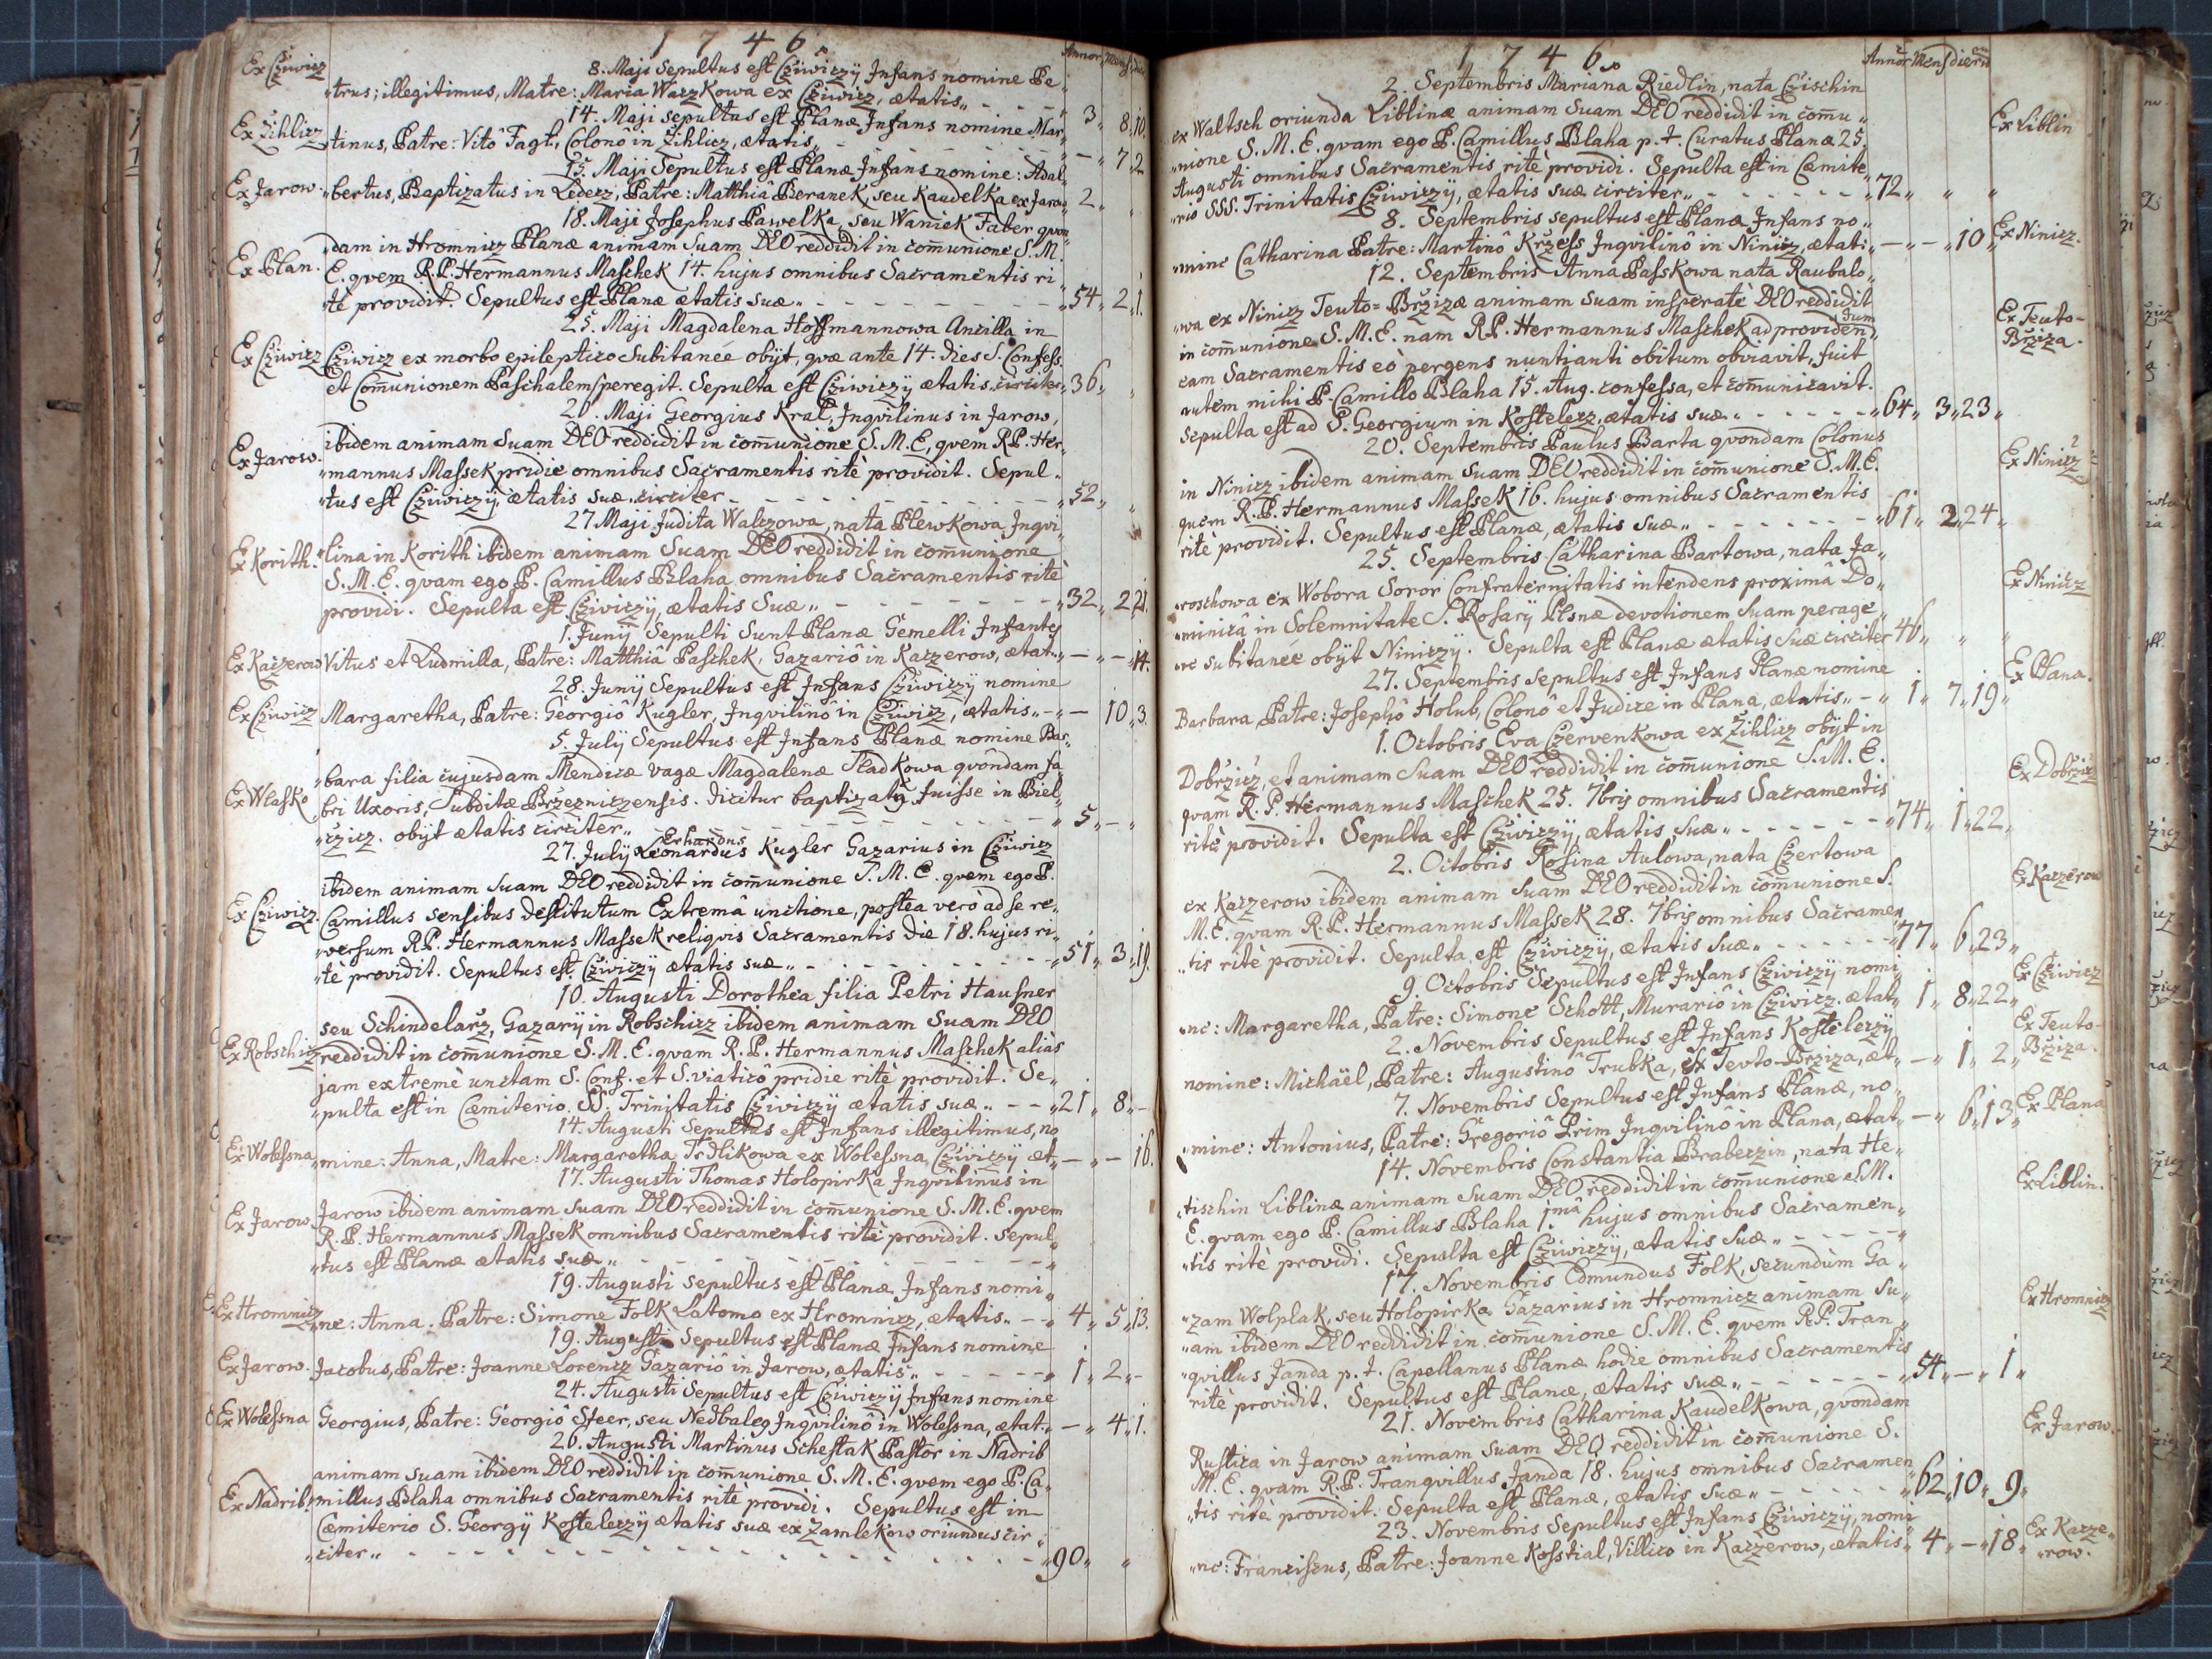 1 7 4 6
Annor. Mens. dier
Ex Cziwicz
8. Maji Sepultus est Cziwiczÿ Infans nomine Pe
„trus; illegitimus, Matre: Maria Waczkowa ex Cziwicz, ætatis„ - - - 3„ 8„ 10.
Ex Žihlicz
14. Maji sepultus est Planæ Infans nomine Mar„
„tinus, Patre: Vitô Fagt, Colonô in Žihlicz, ætatis„ - - - - „ 7„ 2
Ex Jarow.
15. Maji Sepultus est Planæ Infans nomine: Adal„
„bertus, Baptizatus in Lederz, Patre: Matthia Beranek, seu Kaudelka ex Jarow„ 2„ „
18. Maji Josephus Pawelka, seu Waniek Faber qvon„
Ex Plan.
dam in Hromnicz Planæ animam Suam DEO reddidit in com̄unione S. M.
E. qvem R.P. Hermannus Maschek 14. hujus omnibus Sacramentis ri„
„tè providit. Sepultus est Planæ ætatis suæ„ - - - - „54„ 2„ 1.
25. Maji Magdalena Hoffmannowa Ancilla in
Ex Cziwicz
Cziwicz ex morbo epileptico Subitaneè obÿt, qvæ ante 14. dies S. Confess.
et Com̄unionem Paschalem peregit. Sepulta est Cziwiczÿ ætatis circiter„36„ „
26. Maji Georgius Kral, Inqvilinus in Jarow,
Ex Jarow.
ibidem animam Suam DEO reddidit in com̄unione S. M. E, qvem R.P. Her„
„mannus Massek pridie omnibus Sacramentis ritè providit. Sepul„
„tus est Cziwiczÿ, ætatis suæ circiter - - - - „52„ „
27 Maji Judita Walczowa, nata Plewkowa Inqvi„
Ex Korith.
„lina in Korith ibidem animam Suam DEO reddidit in com̄unione
S. M. E. qvam ego P. Camillus Blaha omnibus Sacramentis ritè
providi. Sepulta est Cziwiczÿ, ætatis Suæ„ - - - - „32„ 2„ 21.
1. Junÿ Sepulti Sunt Planæ Gemelli Infantes
Ex Kaczerow
Vitus et Ludmilla, Patre: Matthia Paschek, Gazariô in Kaczerow, ætat.„ — „ — „14.
28. Junÿ Sepultus est Infans Cziwiczÿ nomine
Ex Cziwicz
Margaretha, Patre: Georgiô Kugler, Inqvilinô in Cziwicz, ætatis„ - „ — 10„ 3.
5. Julÿ Sepultus est Infans Planæ nomine Bar„
Ex Wlasko
„bara filia cujusdam Mendicæ vagæ Magdalenæ Sladkowa qvondam fa
bri Uxoris, Subditæ Brzezniczensis. dicitur baptizata fuisse in Biel„
„czicz. obÿt ætatis circiter„ - - - - „ 5„ — „
Erhardus
27. Julÿ Leonardus Kugler Gazarius in Cziwicz
Ex Cziwicz.
ibidem animam Suam DEO reddidit in com̄unione S. M. E. qvem ego P.
Camillus sensibus destitutum Extremâ unctione, postea verò ad se re„
„versum R.P. Hermannus Massek reliqvis Sacramentis die 18. hujus ri„
„tè providit. Sepultus est Cziwiczÿ ætatis suæ„ - - - - „51„ 3„ 19.
10. Augusti Dorothea filia Petri Hausner
Ex Robschicz
seu Schindelarz, Gazarÿ in Robschicz ibidem animam Suam DEO
reddidit in com̄unione S. M. E. qvam R. P. Hermannus Maschek aliàs
jam extremè unctam S. Conf. et S. viaticô pridie ritè providit. Se„
„pulta est in Cœmiterio SS. Trinitatis Cziwiczÿ ætatis suæ„ - - „21„ 8„ -
14. Augusti Sepultus est Infans illegitimus, no
Ex Wolessna
„mine: Anna, Matre: Margaretha Trzlikowa ex Wolessna, Cziwiczÿ æt„ — „ — 16.
17. Augusti Thomas Holopirka Inqvilinus in
Ex Jarow
Jarow ibidem animam suam DEO reddidit in com̄unione S. M. E. qvem
R. P. Hermannus Massek omnibus Sacramentis ritè providit. Sepul„
„tus est Planæ ætatis suæ„ - - - - „
19. Augusti sepultus est Planæ Infans nomi„
Ex Hromnicz
„ne: Anna. Patre: Simone Folk Latomo ex Hromnicz, ætatis„ - - „ 4„ 5„ 13.
19. Augusti Sepultus est Planæ Infans nomine
Ex Jarow.
Jacobus, Patre: Joanne Lorencz Gazariô in Jarow, ætatis„ - - - „ 1„ 2„ -
24. Augusti Sepultus est Cziwiczÿ Infans nomine
Ex Wolessna
Georgius, Patre: Georgiô Steer, seu Nedbaleg Inqvilinô in Wolessna, ætat.„ — „ 4„ 1.
26. Augusti Martinus Schestak Pastor in Nadrib
Ex Nadrib
animam suam ibidem DEO reddidit in com̄unione S. M. E. qvem ego P. Ca„
„millus Blaha omnibus Sacramentis ritè providi. Sepultus est in
Cœmiterio S. Georgÿ Kosteleczÿ ætatis suæ ex Zamlekow oriundus cir„
„citer„ - - - - „90„ „
1 7 4 6.
Annor̄ Mens dierū
2. Septembris Mariana Riedlin, nata Czischin
ex Waltsch oriunda Liblinæ animam Suam DEO reddidit in com̄u„
Ex Liblin
„nione S. M. E. qvam ego P. Camillus Blaha p. t. Curatus Planæ 25.
Augusti omnibus Sacramentis ritè providi. Sepulta est in Cœmite„
„rio SSS. Trinitatis Cziwiczÿ, ætatis suæ circiter„ - - - „72„ „ „
8. Septembris sepultus est Planæ Infans no„
„mine Catharina Patre: Martinô Krzess Inqvilinô in Ninicz, ætati„ — „ — „10„
Ex Ninicz.
12. Septembris Anna Passkowa nata Raubalo„
„wa ex Ninicz Teuto=Brzizæ animam suam insperatè DEO reddidit
Ex Teuto-
Brziza.
in com̄unione S. M. E. nam R.P. Hermannus Maschek ad providen„dum
eam Sacramentis eò pergens nuntianti obitum obviavit, fuit
autem mihi P. Camillo Blaha 15. Aug. confessa, et com̄unicavit.
Sepulta est ad S. Georgium in Kostelecz, ætatis suæ„ - - - „64„ 3„ 23„
20. Septembris Paulus Barta qvondam Colonus
Ex Ninicz
in Ninicz ibidem animam Suam DEO reddidit in com̄unione S. M. E.
quem R. P. Hermannus Massek 16. hujus omnibus Sacramentis
ritè providit. Sepultus est Planæ, ætatis suæ„ - - - - „61„ 2„ 24„
25. Septembris Catharina Bartowa, nata Ja„
Ex Ninicz
„roschowa ex Wobora Soror Confraternitatis intendens proximâ Do„
„minicâ in Solemnitate S. Rosarÿ Plsnæ devotionem Suam perage„
„re subitaneè obÿt Niniczÿ. Sepulta est Planæ ætatis Suæ circiter 46„ „ „
27. Septembris sepultus est Infans Planæ nomine
Ex Plana.
Barbara, Patre: Josephô Holub, Colonô et Judice in Plana, ætatis„ - „ 1„ 7„ 19„
1. Octobris Eva Czervenkowa ex Žihlicz obÿt in
Dobrzicz, et animam Suam DEO reddidit in com̄unione S. M. E.
Ex Dobrzicz
qvam R. P. Hermannus Maschek 25. 7bris omnibus Sacramentis
ritè providit. Sepulta est Cziwiczÿ, ætatis suæ„ - - - - „74„ 1„ 22„
2. Octobris Rosina Aulowa, nata Czertowa
Ex Kaczerow
ex Kaczerow ibidem animam Suam DEO reddidit in com̄unione S.
M. E. qvam R. P. Hermannus Massek 28. 7bris omnibus Sacramen„
„tis ritè providit. Sepulta est Cziwiczÿ, ætatis suæ„ - - - „77„ 6„ 23„
9. Octobris Sepultus est Infans Cziwiczÿ nomi„
Ex Cziwicz
„ne: Margaretha, Patre: Simone Schott, Murariô in Cziwicz. ætat„ 1„ 8„ 22„
2. Novembris Sepultus est Infans Kosteleczÿ
Ex Teuto-
Brziza.
nomine: Michäel, Patre: Augustinô Trubka, ex Teuto-Brziza, æt„ — „ 1„ 2„
7. Novembris Sepultus est Infans Planæ, no„
„mine: Antonius, Patre: Gregoriô Prim Inqvilinô in Plana, ætat„ — „ 6„ 13„
Ex Plana
14. Novembris Constantia Braberzin, nata He„
„tischin Liblinæ animam Suam DEO reddidit in com̄unione S. M.
Ex Liblin.
E. qvam ego P. Camillus Blaha 1.mâ hujus omnibus Sacramen„
„tis ritè providi. Sepulta est Cziwiczÿ, ætatis suæ„ - - - „
17. Novembris Edmundus Folk, secundùm Ga„
„zam Wolplak, seu Holopirka Gazarius in Hromnicz animam su„
Ex Hromnicz
„am ibidem DEO reddidit in com̄unione S. M. E. qvem R.P. Tran„
„qvillus Janda p. t. Capellanus Planæ hodie omnibus Sacramentis
ritè providit. Sepultus est Planæ, ætatis suæ„ - - - - „54„ — „ 1„
21. Novembris Catharina Kaudelkowa, qvondam
Ex Jarow.
Rustica in Jarow animam suam DEO reddidit in com̄unione S.
M. E. qvam R.P. Tranqvillus Janda 18. hujus omnibus Sacramen„
„tis ritè providit. Sepulta est Planæ, ætatis suæ„ - - - - „62„ 10„ 9„
23. Novembris Sepultus est Infans Cziwiczÿ, nomi„
„ne: Franciscus, Patre: Joanne Kosstial, Villico in Kaczerow, ætatis„ 4„ — „18„
Ex Kacze„
„row.